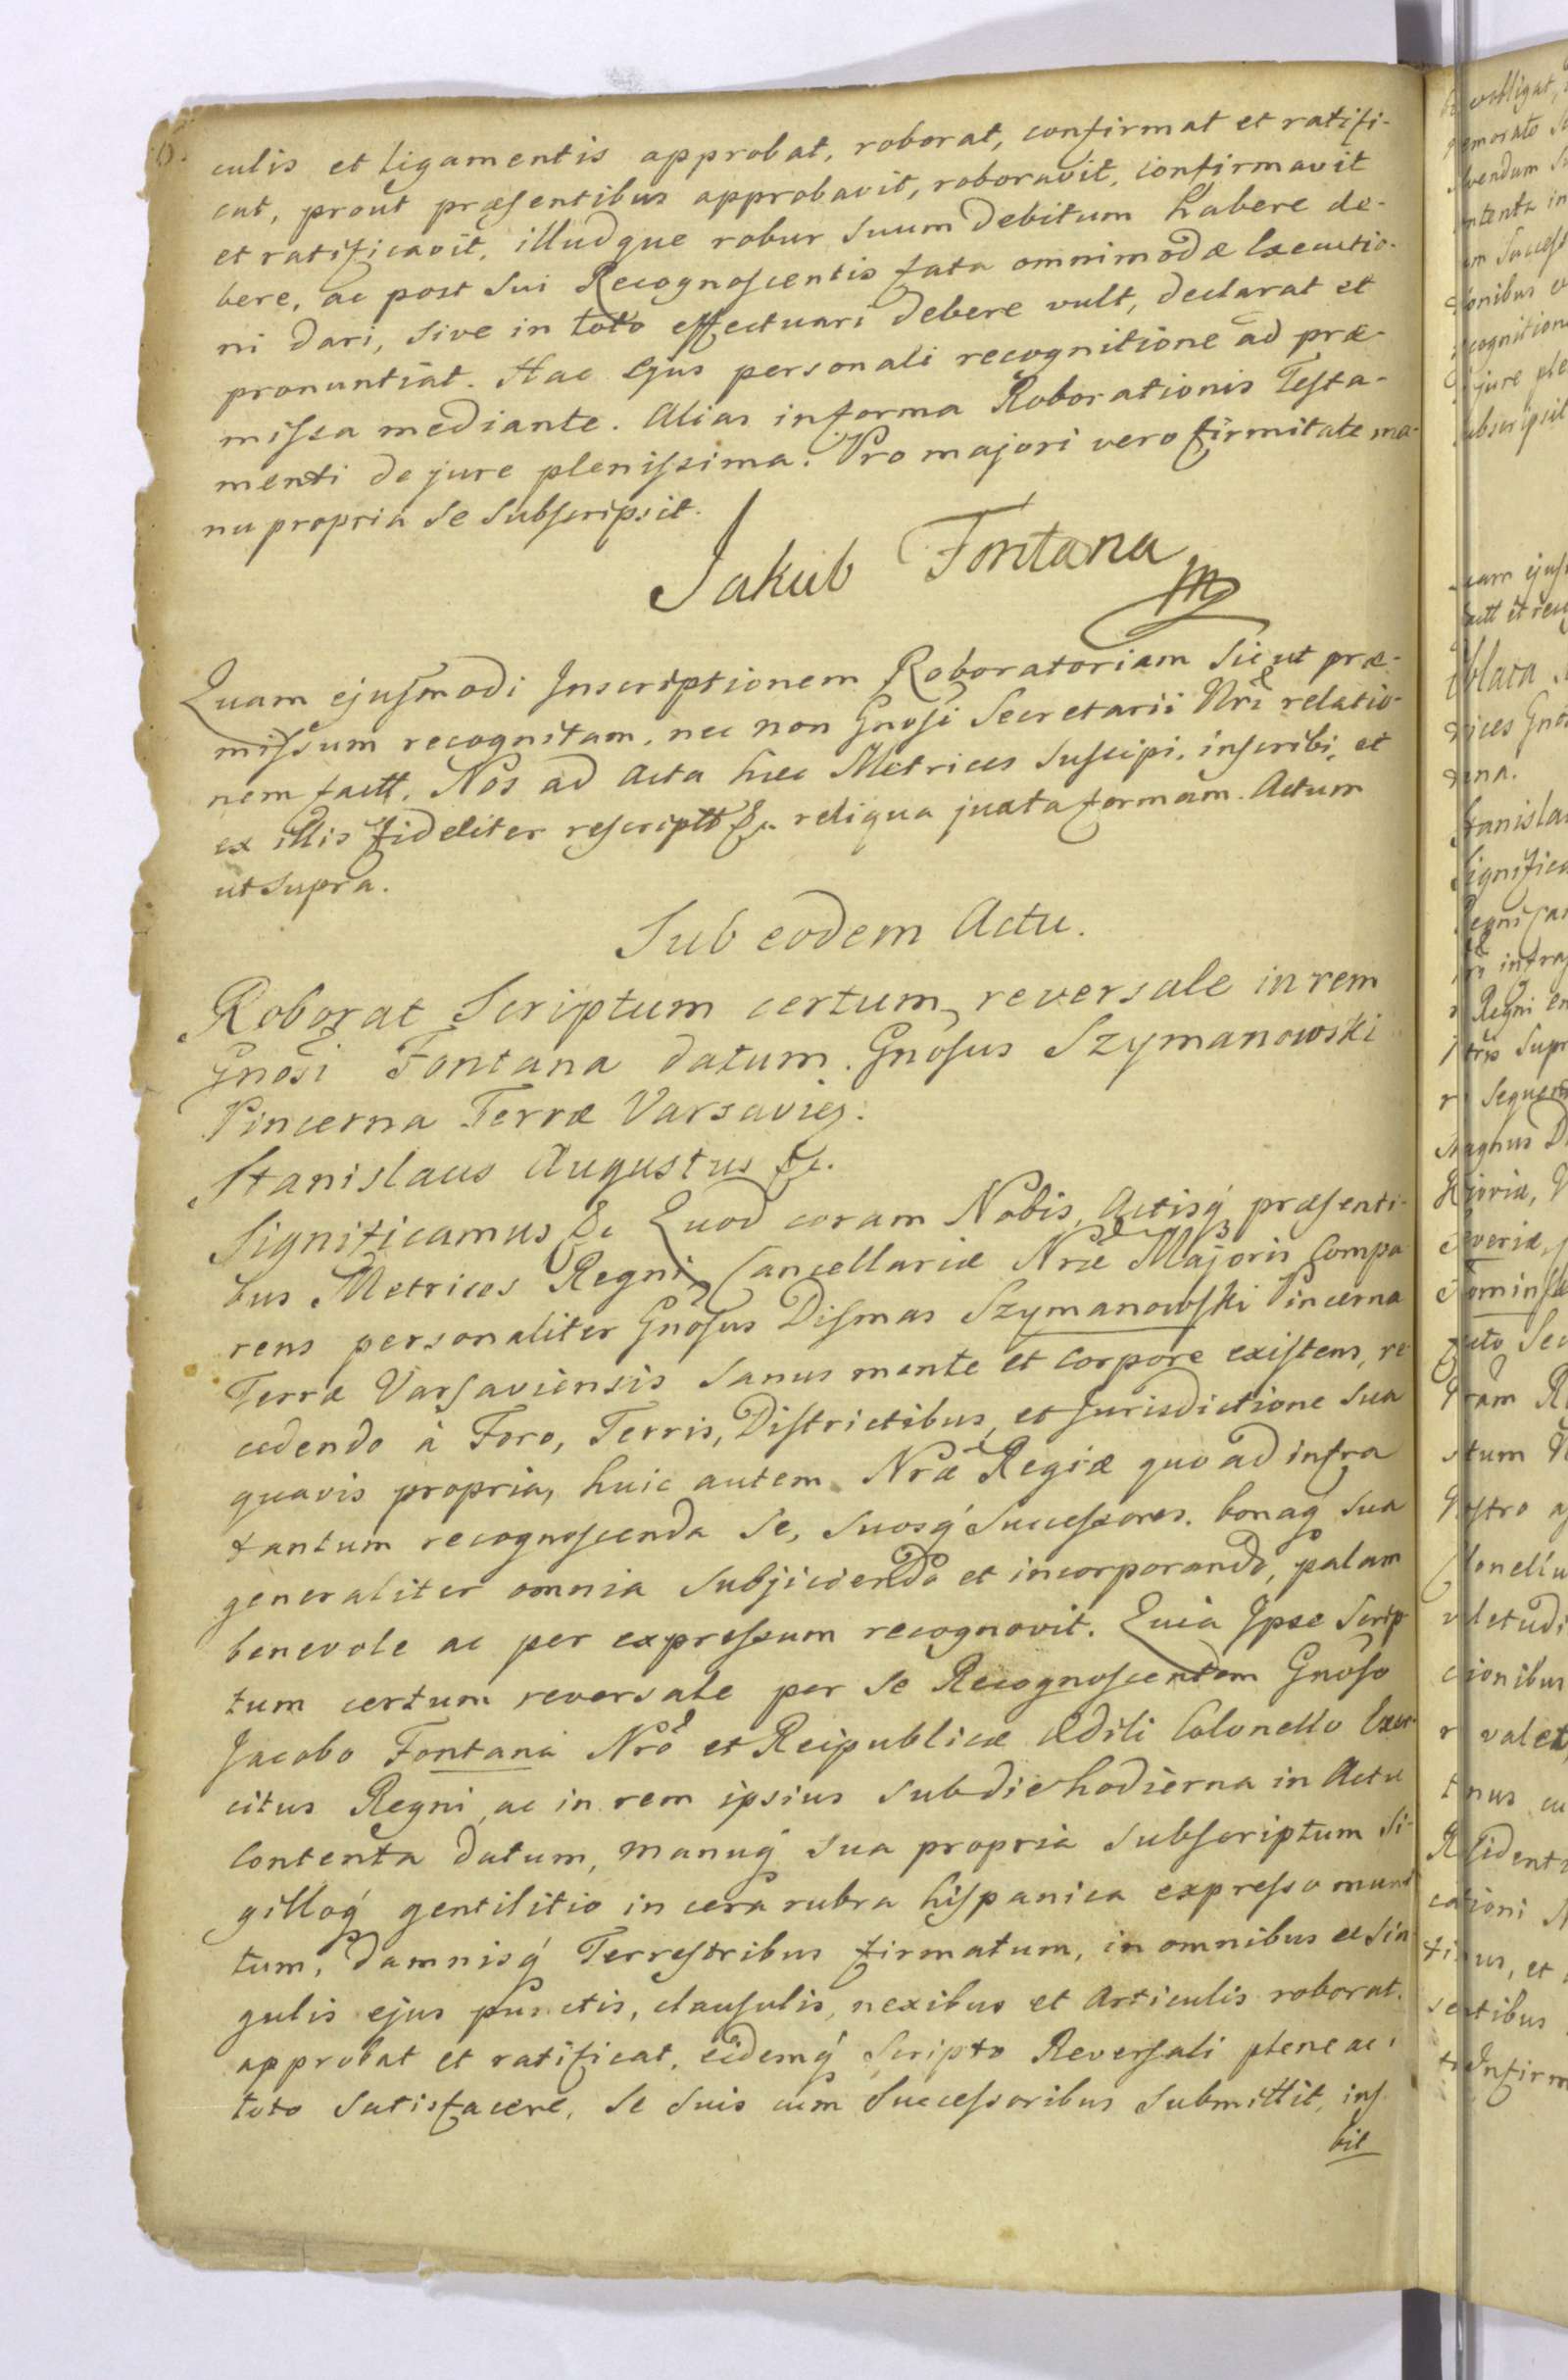 culis et ligamentis approbat, roborat, confirmat et ratifi-
cat, prout præsentibus approbavit, roboravit, confirmavit
et ratificavit, illudque robur suum debitum habere de-
bere, ac post sui Recognoscentis fata omnimodæ Executio-
ni dari, sive in toto effectuari debere vult, declarat et
pronuntiat. Hac Ejus personali recognitione ad præ-
missa mediante. Alias in forma Roborationis Testa-
menti de jure plenissima. Pro majori vero firmitate ma-
nu propria se subscripsit.
Jakub Fontana
Quam ejusmodi Inscriptionem Roboratoriam sicut præ-
missum recognitam, nec non Gnosi Secretarii Nri relatio-
nem factt. Nos ad Acta hæc Metrices suscipi, inscribi, et
ex illis fideliter rescriptt &c. reliqua juxta formam. Actum
ut supra.
Sub eodem Actu.
Roborat Scriptum certum reversale in rem
Gnosi Fontana datum. Gnosus Szymanowski
Pincerna Terræ Varsavieg.
Stanislaus Augustus &c.
Significamus &c Quod coram Nobis, Actisq́ præsenti-
bus Metrices Regni Cancellariæ Nræ Majoris Compa
rens personaliter Gnosus Dismas Szymanowski Pincerna
Terræ Varsaviensis sanus mente et corpore existens, re
cedendo à Foro, Terris, Districtibus, et Jurisdictione sua
quavis propria, huic autem Nræ Regiæ quo ad infra
tantum recognoscenda se, suosq́ successores, bonaq́ sua
generaliter omnia subjiciendo et incorporando, palam
benevole ac per expressum recognovit. Quia Ipse Scrip
tum certum reversale per se Recognoscentem Gnoso
Jacobo Fontana Nro et Reipublicæ Ædili Colonello Exer
citus Regni, ac in rem ipsius sub die hodierna in Actu
contenta datum, manuq́ sua propria subscriptum si-
gilloq́ gentilitio in cera rubra hispanica expresso muni
tum, damnisq́ Terrestribus firmatum, in omnibus et sin
gulis ejus punctis, clausulis, nexibus et Articulis roborat,
approbat et ratificat, eidemq́ Scripto Reversali plene ac i
toto satisfacere, se suis cum Successoribus submittit, ins
bit